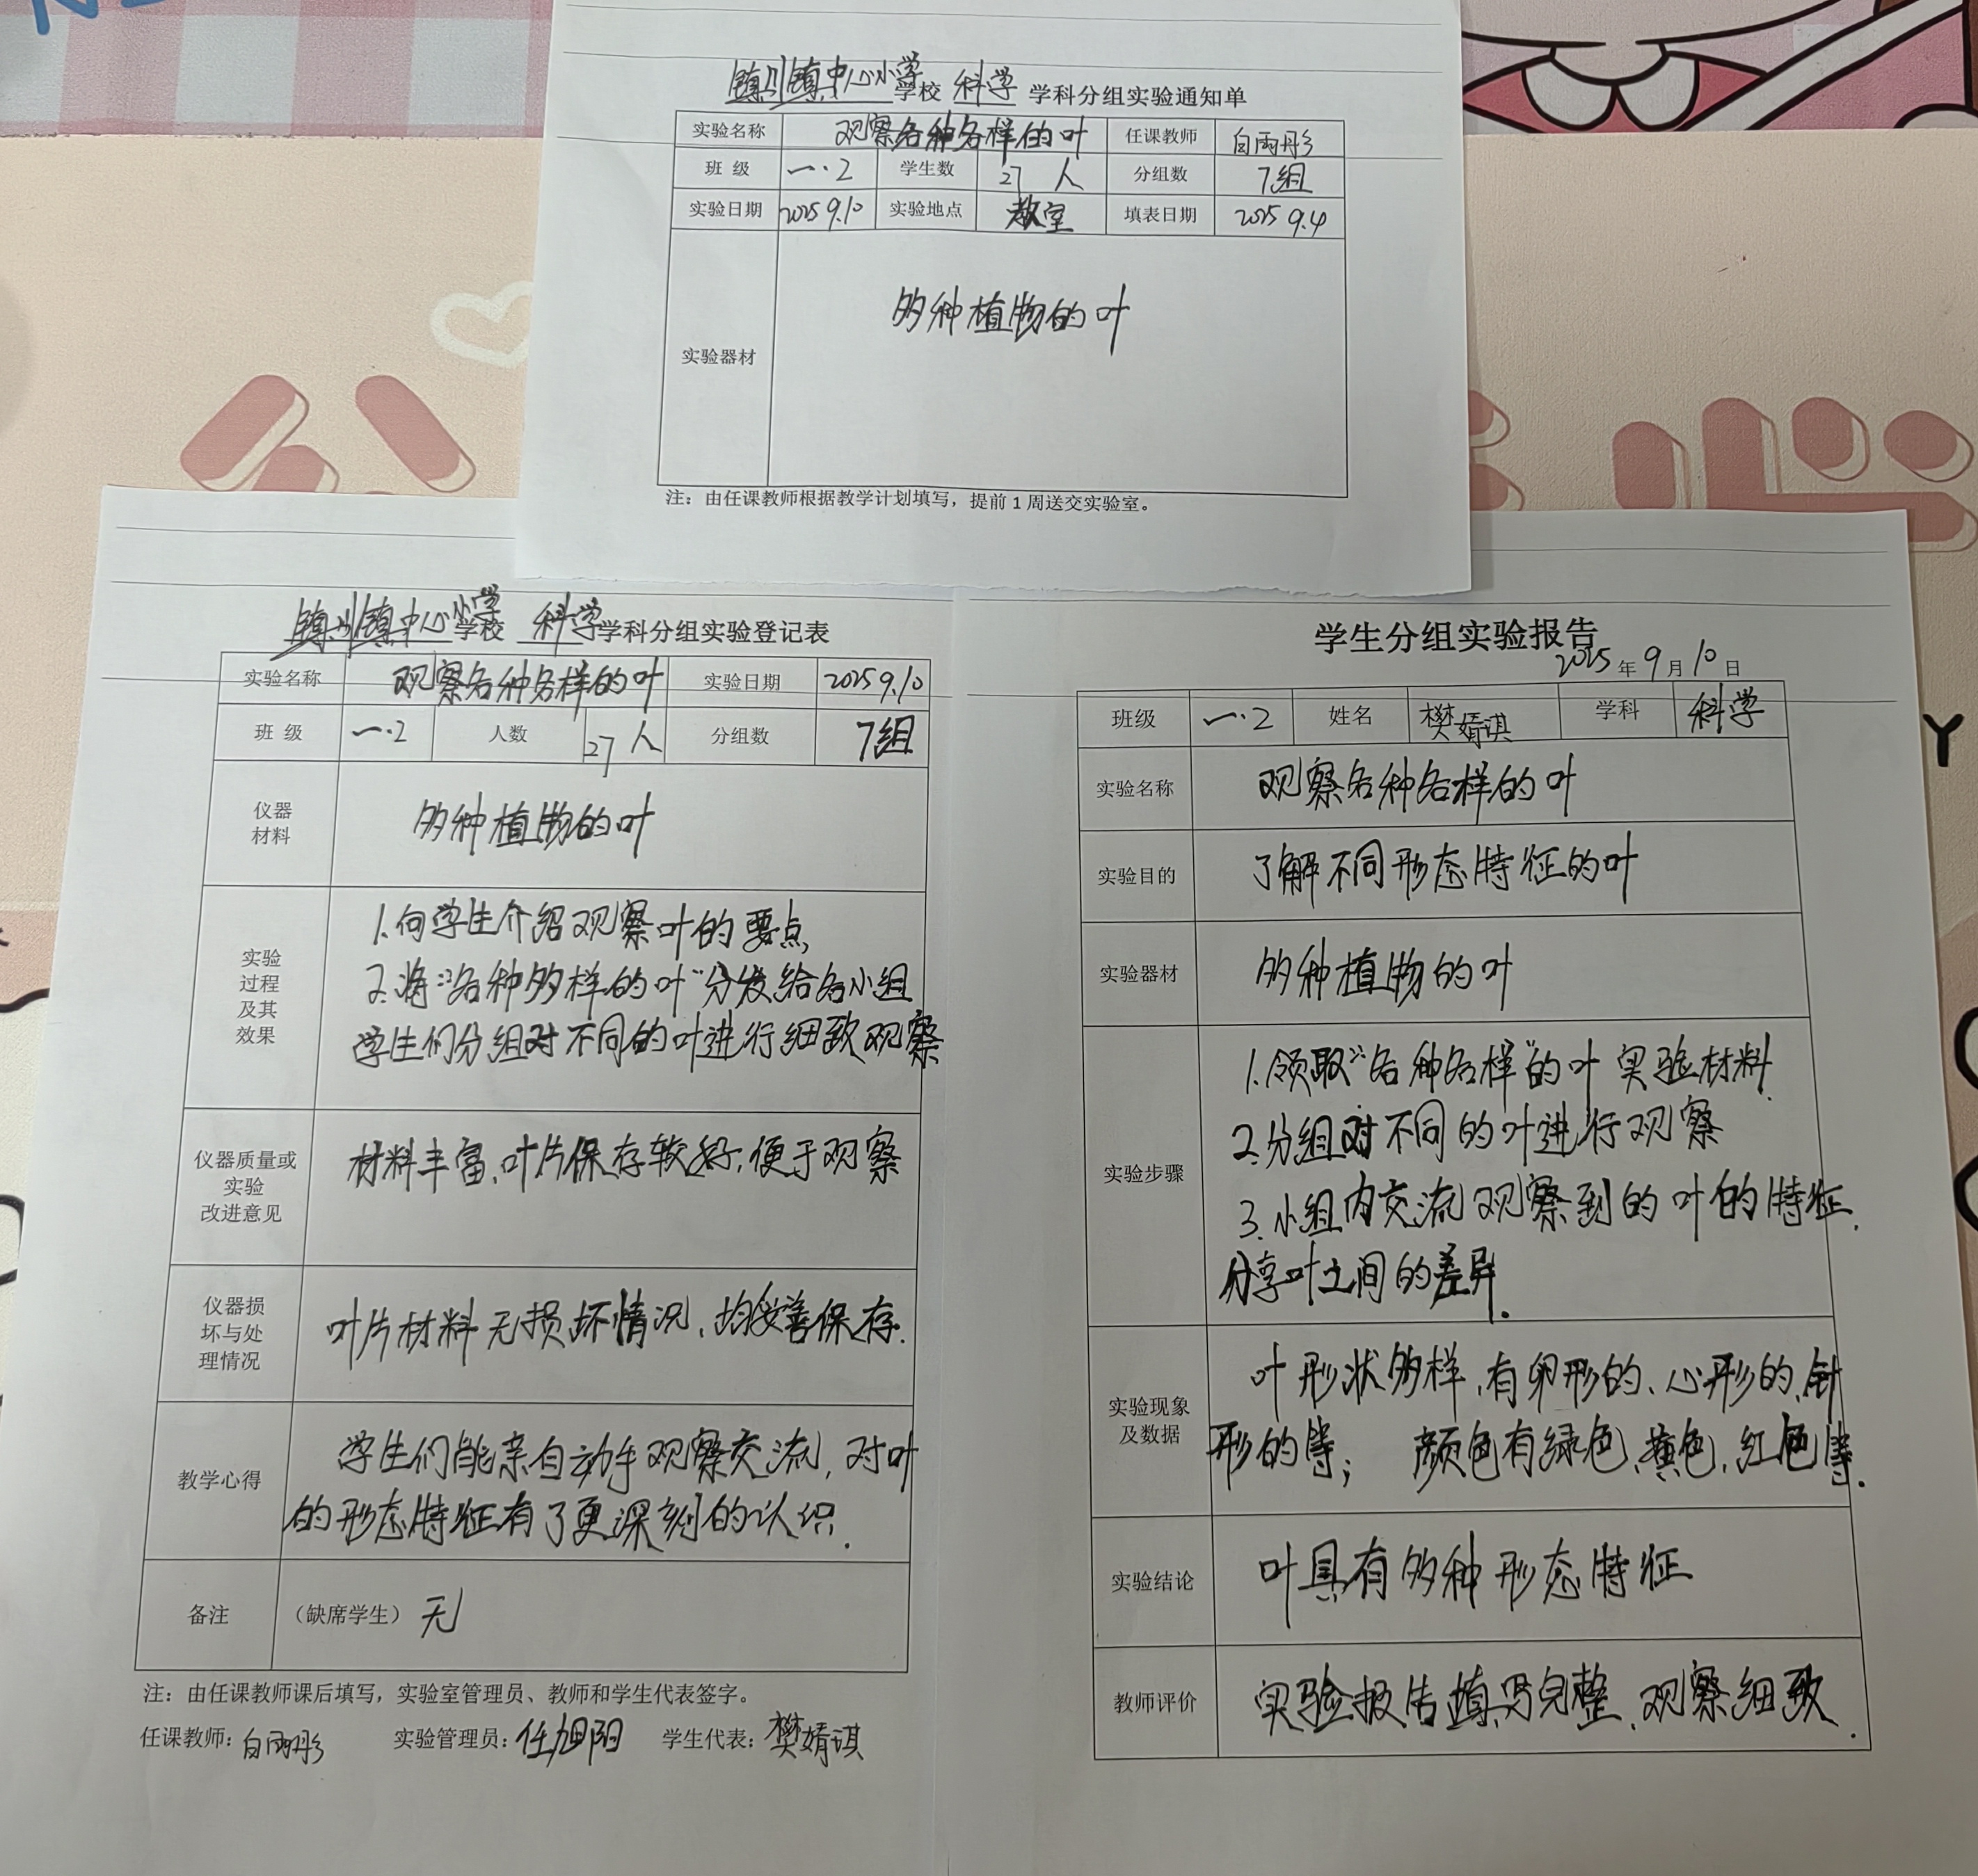 镇川镇中心小学学校 科学 学科分组实验通知单
实验名称 观察各种各样的叶 任课教师 白雨彤
班 级 一.2 学生数 27 人 分组数 7组
实验日期 2025 9.10 实验地点 教室 填表日期 2025 9.4
实验器材 多种植物的叶
注：由任课教师根据教学计划填写，提前 1 周送交实验室。
镇川镇中心小学学校 科学学科分组实验登记表
实验名称 观察各种各样的叶 实验日期 2025 9.10
班 级 一.2 人数 27 人 分组数 7组
仪器
材料
多种植物的叶
实验
过程
及其
效果
1.向学生介绍观察叶的要点
2.将“各种多样的叶”分发给各小组
学生们分组对不同的叶进行细致观察
仪器质量或
实验
改进意见
材料丰富,叶片保存较好,便于观察
仪器损
坏与处
理情况
叶片材料无损坏情况、均妥善保存.
教学心得
学生们能亲自动手观察交流,对叶
的形态特征有了更深刻的认识.
备注 （缺席学生）无
注：由任课教师课后填写，实验室管理员、教师和学生代表签字。
任课教师：白雨彤 实验管理员：任旭阳 学生代表：樊婧琪
学生分组实验报告
2025 年 9 月 10 日
班级 一.2 姓名 樊婧琪 学科 科学
实验名称 观察各种各样的叶
实验目的 了解不同形态特征的叶
实验器材 多种植物的叶
实验步骤
1.领取“各种各样”的叶实验材料.
2.分组对不同的叶进行观察
3.小组内交流观察到的叶的特征.
分享叶之间的差异.
实验现象
及数据
叶形状多样,有卵形的、心形的、针
形的等; 颜色有绿色、黄色,红色等.
实验结论 叶具有多种形态特征
教师评价 实验报告填写完整、观察细致.